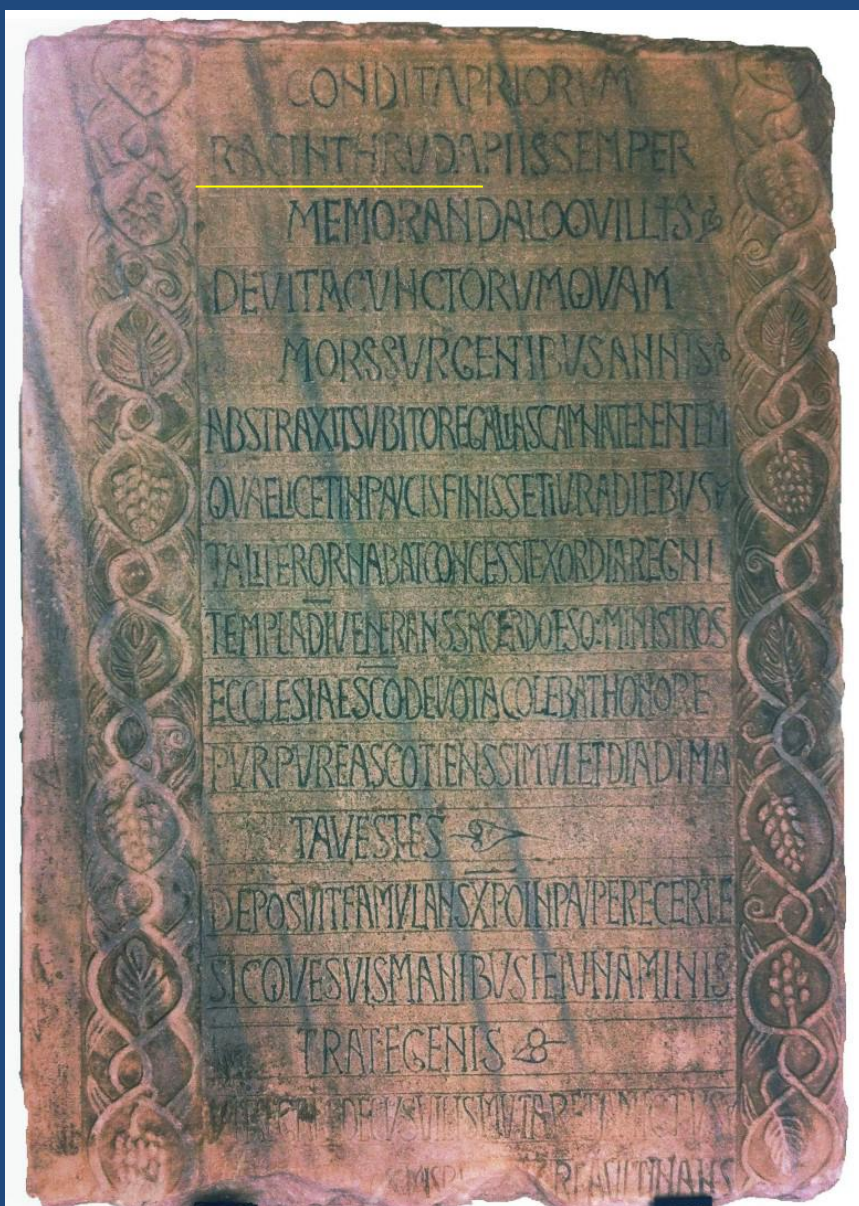 CONDITAPRIORVM
RAGINTHRUDAPIISSEMPER
MEMORANDALOQVILLIS
DEVITACVNCTORVMQVAM
MORSSVRGENTIBUSANNIS
ABSTRAXITSVBITOREGALIASCAMNATENENTEM
QVAELICETINPAVCISFINISSETIVRADIEBVS
TALITERORNABATCONCESSIEXORDIAREGNI
TEMPLADIVENERANSSACERDOESQ:MINISTROS
ECCLESIAESCODEVOTACOLEBATHONORE
PVRPVREASCOTIENSSIMVLETDIADIMA
TAVESTES
DEPOSVITFAMVLANSXPOINPAVPERECERTE
SICQVESVISMANIBUSIEIVNAMINIS
TRATEGENIS